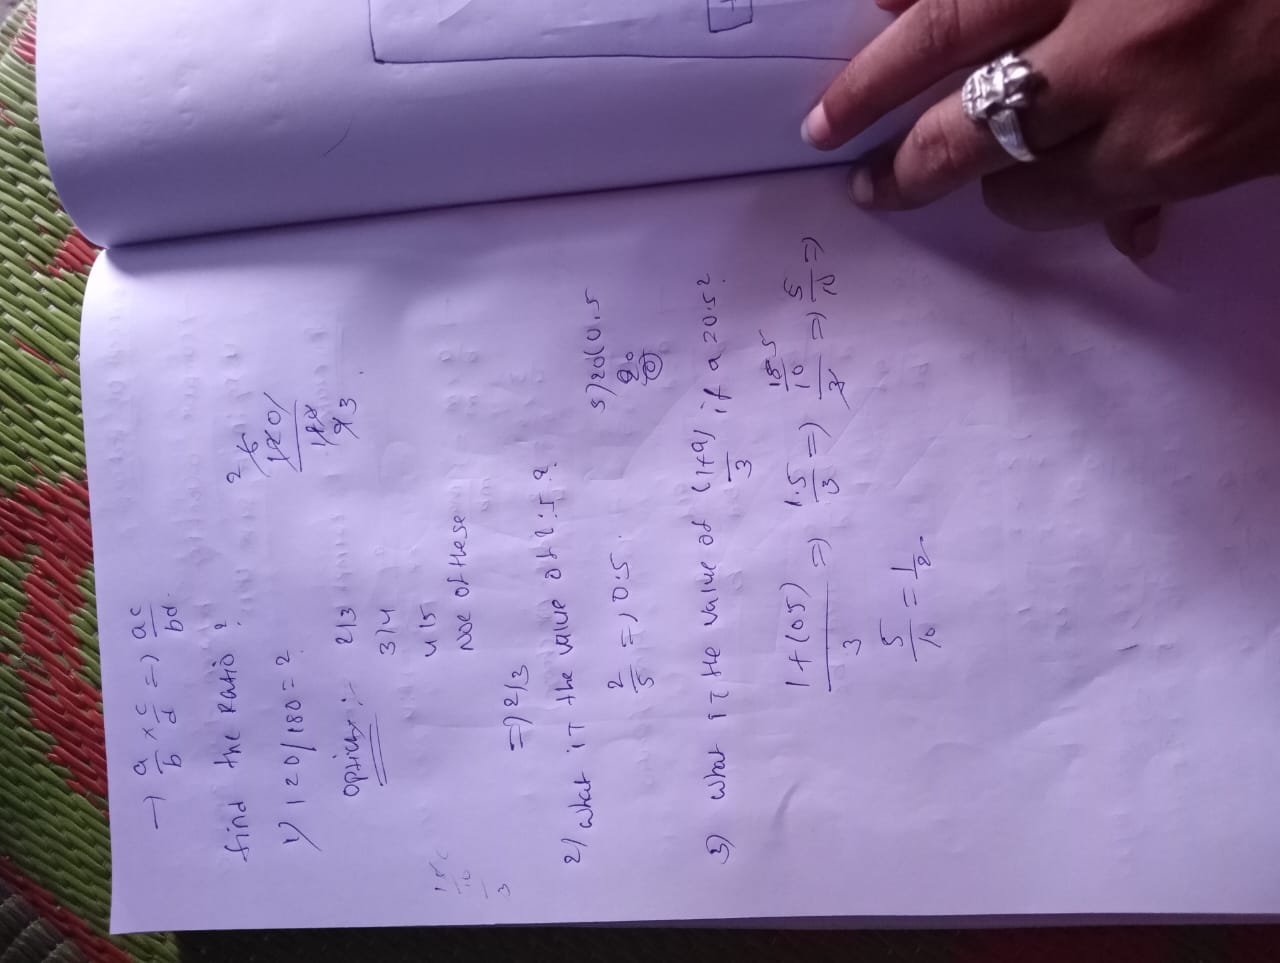 → a/b × c/d => ac/bd
find the Ratio?
1) 120/180 = ?
120/180
2 3
options :- 2/3
3/4
4/5
Noe of these
=> 2/3
2) what is the value of 2:5?
2/5 => 0.5
5)20(0.5
20
0
3) what is the value of (1+a)/3 if a=0.5?
1+(0.5)/3 => 1.5/3 => 15/10/3 => 5/10 =>
5/10 = 1/2